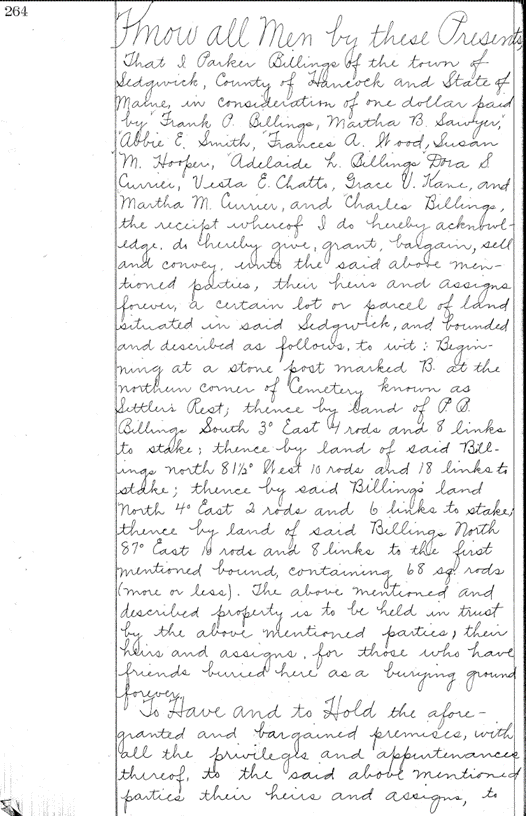 264
Know all Men by these Presents,
That I Parker Billings of the town of
Sedgwick, County of Hancock and State of
Maine, in consideration of one dollar paid
by Frank P. Billings, Martha B. Sawyer,
Abbie E. Smith, Frances A. Wood, Susan
M. Hooper, Adelaide L. Billings Dora S
Currier, Vesta E. Chatto, Grace V. Kane, and
Martha M. Currier, and Charles Billings,
the receipt whereof I do hereby acknowl-
edge, do hereby give, grant, bargain, sell
and convey, unto the said above men-
tioned parties, their heirs and assigns
forever, a certain lot or parcel of land
situated in said Sedgwick, and bounded
and described as follows, to wit: Begin-
ning at a stone post marked B. at the
northern corner of Cemetery known as
Settler's Rest; thence by land of P. B.
Billings South 3° East 4 rods and 8 links
to stake; thence by land of said Bill-
ings north 81½° West 10 rods and 18 links to
stake; thence by said Billings' land
North 4° East 2 rods and 6 links to stake;
thence by land of said Billings North
87° East rods and 8 links to the first
mentioned bound, containing 68 sq. rods
(more or less). The above mentioned and
described property is to be held in trust
by the above mentioned parties, their
heirs and assigns, for those who have
friends buried here as a burying ground
forever.
To Have and to Hold the afore-
granted and bargained premises, with
all the privileges and appurtenances
thereof, to the said above mentioned
parties their heirs and assigns, to